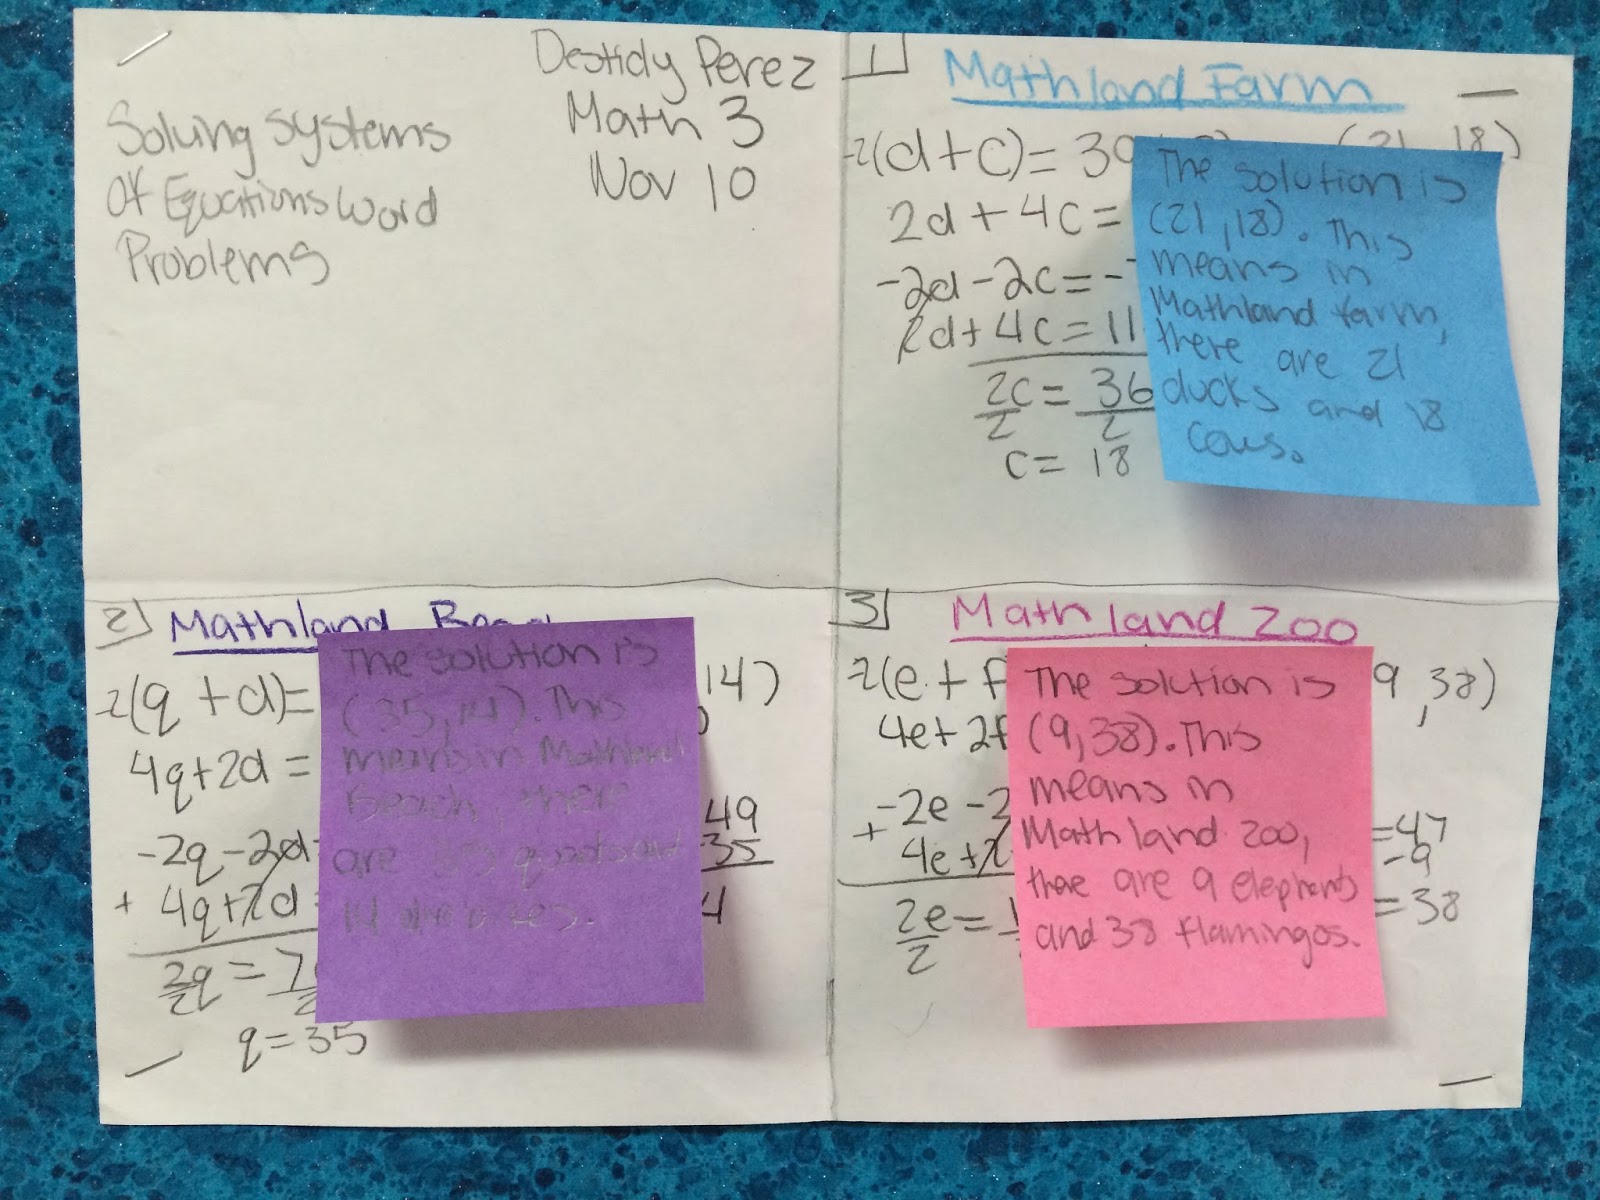 Destidy Perez
Math 3
Nov 10
Solving systems
Of Equations Word
Problems
1
Mathland Farm
-2(d+c)= 39
(21, 18)
2d + 4c =
-2d - 2c = -
2d + 4c = 11
2c = 36
2 2
c = 18
The solution is
(21,18). This
means in
Mathland farm,
there are 21
ducks and 18
cows.
2
Mathland
-2(q + d)=
14)
4q+2d =
-2q-2d
+ 4q+2d
2q = 7
2
q=35
49
35
4
The solution is
(35,14). This
means in Mathland
Beach, there
are 35 and
14
3
Mathland Zoo
-2(e + f
9, 38)
4e+2f
-2e -2
+ 4e+2
2e =
2
=47
-9
=38
The solution is
(9,38). This
means in
Mathland zoo,
there are 9 elephants
and 38 flamingos.